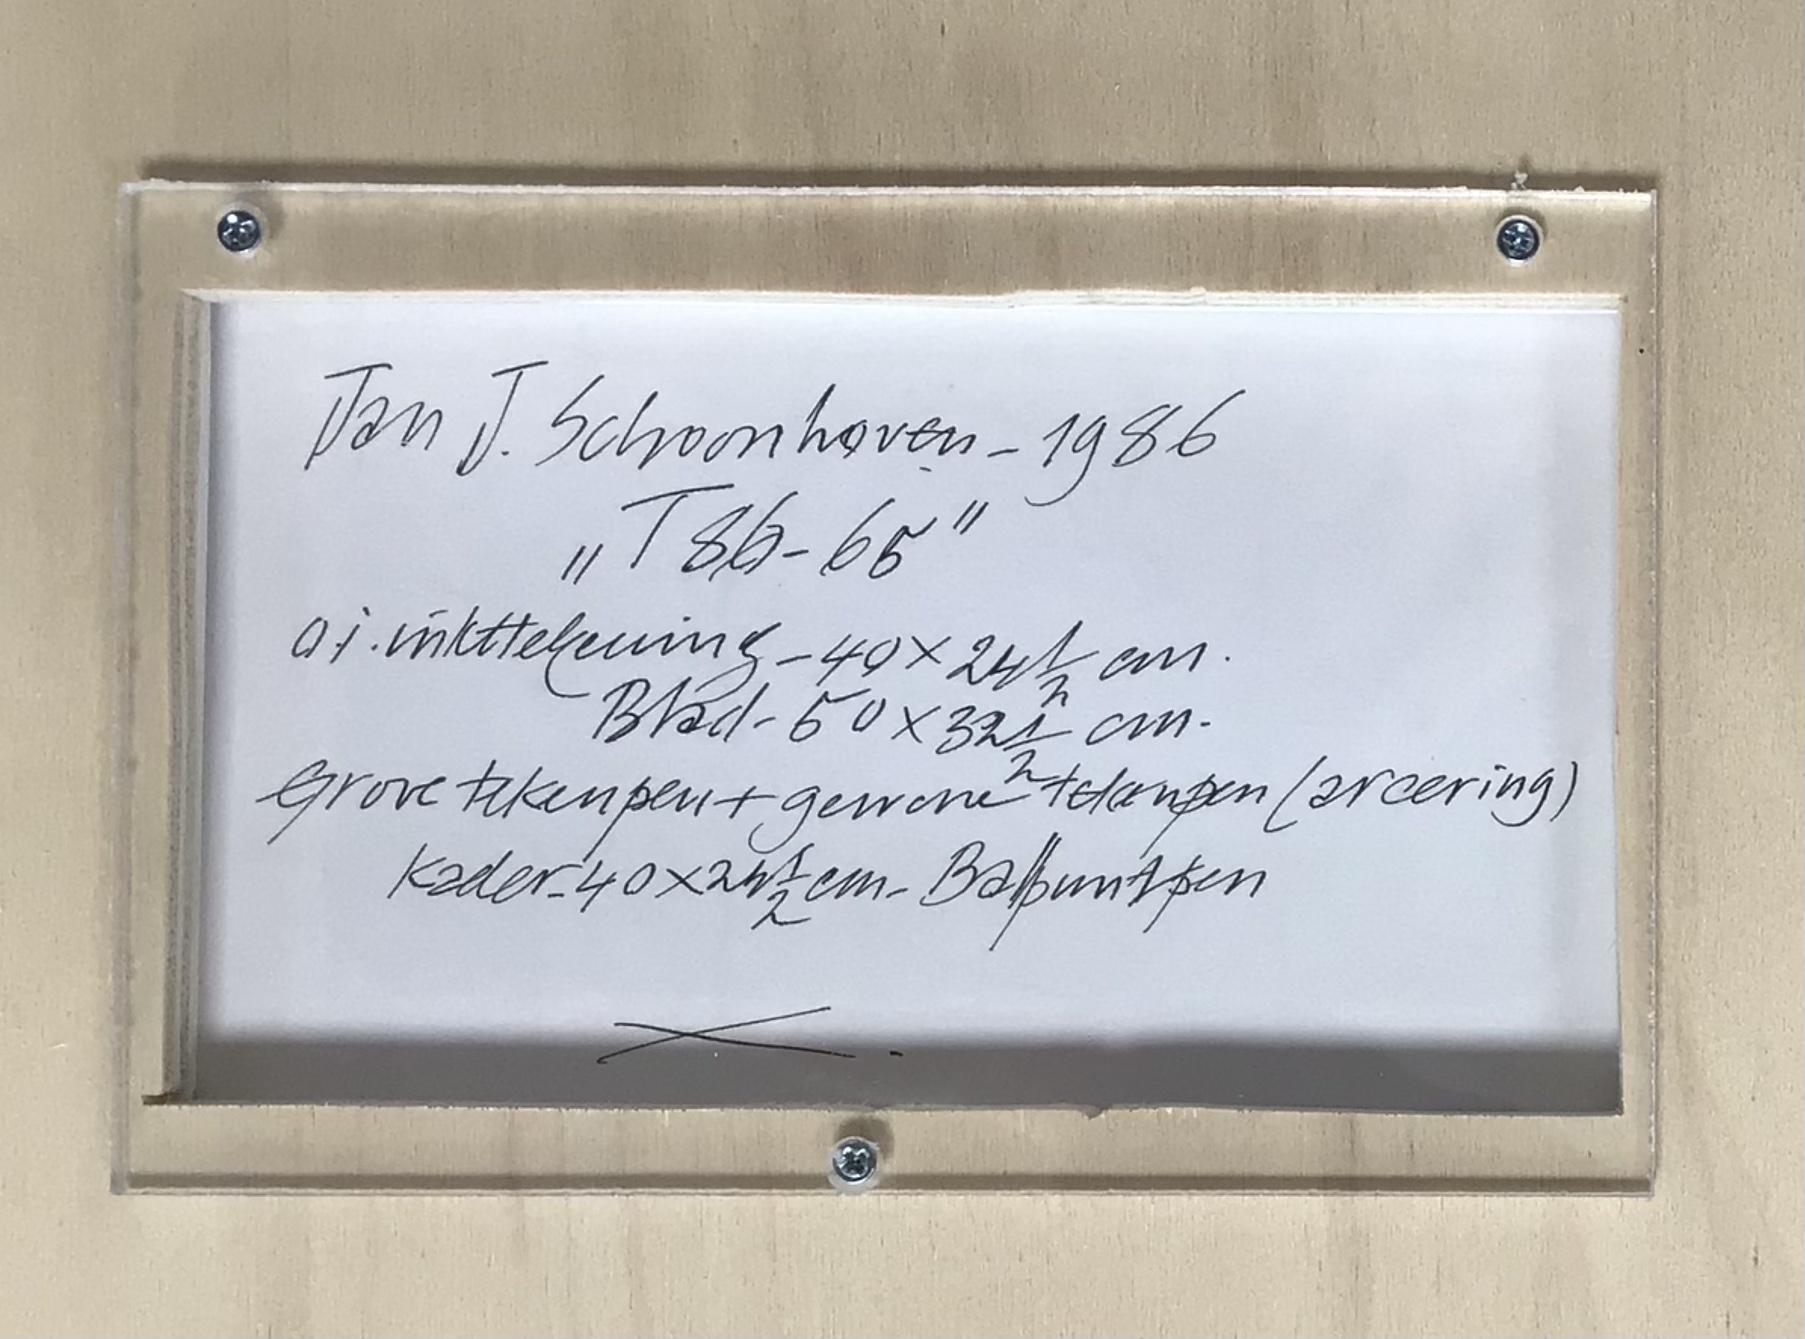 Jan J. Schoonhoven - 1986
„T 86 - 65”
o.i. inkttekening - 40 x 24 1/2 cm.
Blad - 50 x 32 1/2 cm.
Grove tekenpen + gewone tekenpen (arcering)
Kader - 40 x 24 1/2 cm - Ballpuntpen